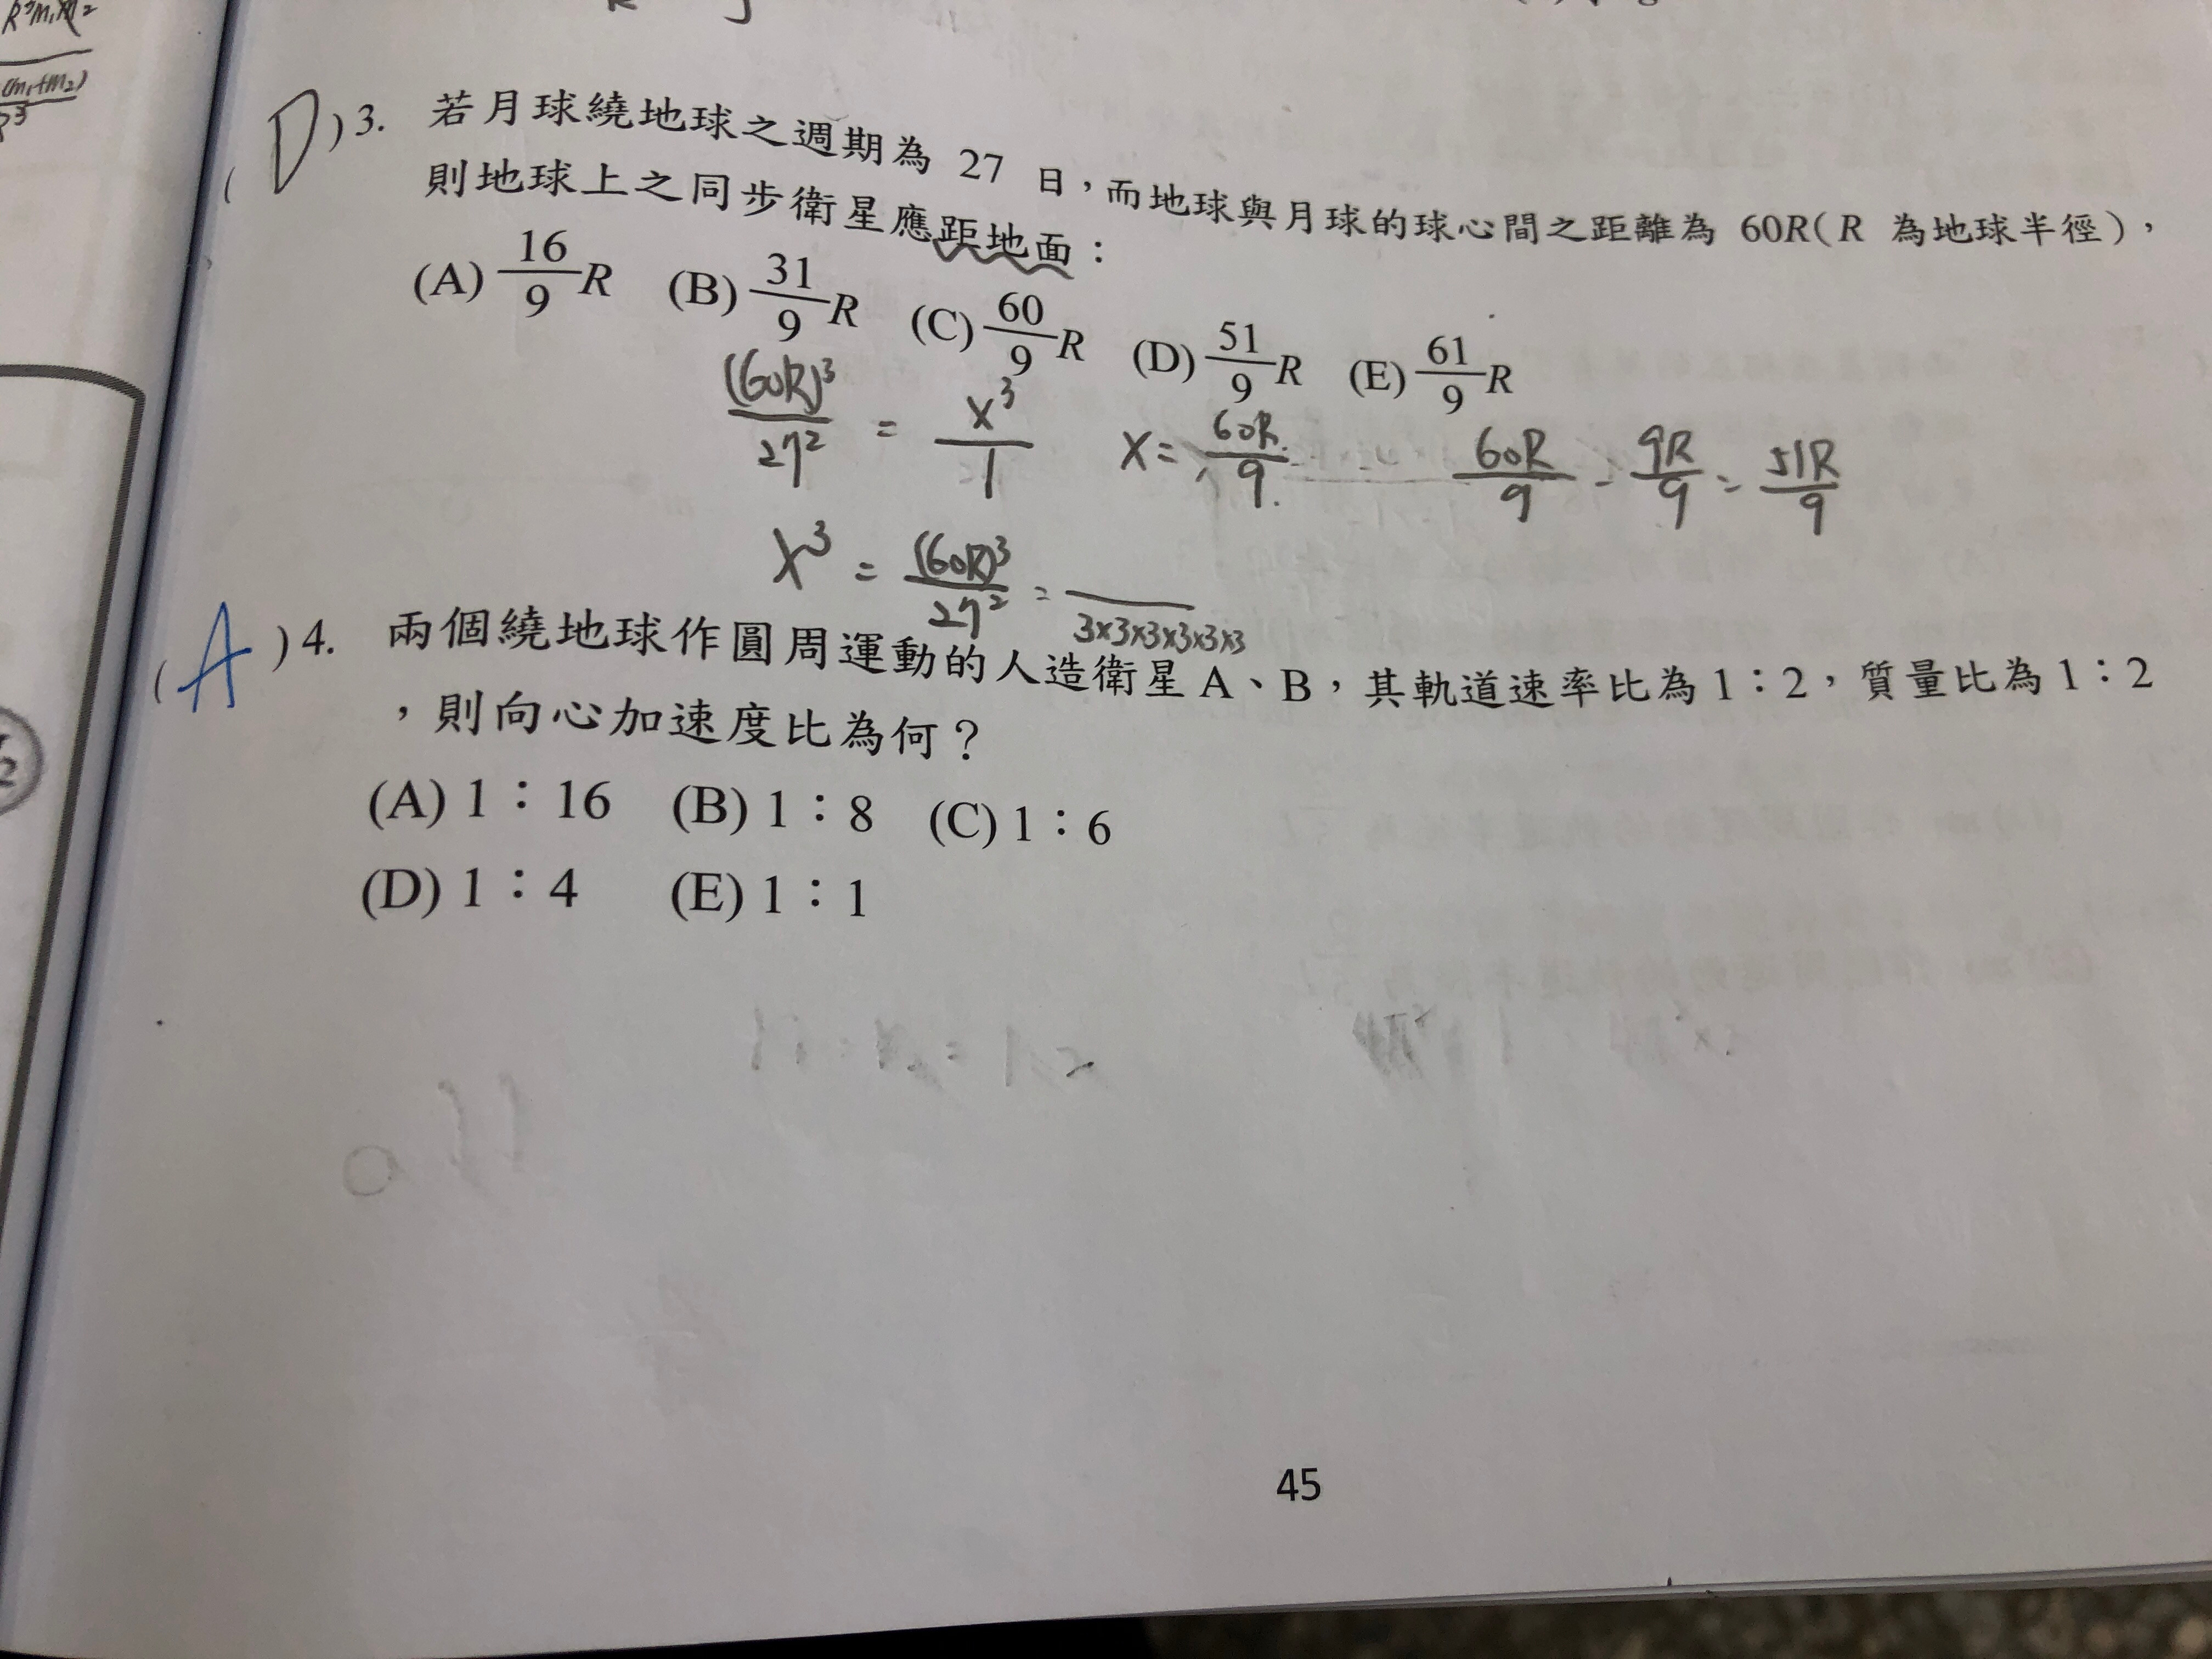 R³m₁m₂
(m₁+m₂)
(D)3. 若月球繞地球之週期為 27 日，而地球與月球的球心間之距離為 60R(R 為地球半徑)，
則地球上之同步衛星應距地面：
(A) 16/9 R (B) 31/9 R (C) 60/9 R (D) 51/9 R (E) 61/9 R
(60R)³/27² = x³/1 x = 60R/9 60R/9 - 9R/9 = 51R/9
x³ = (60R)³/27² = /3×3×3×3×3×3
(A)4. 兩個繞地球作圓周運動的人造衛星 A、B，其軌道速率比為 1：2，質量比為 1：2
，則向心加速度比為何？
(A) 1：16 (B) 1：8 (C) 1：6
(D) 1：4 (E) 1：1
45